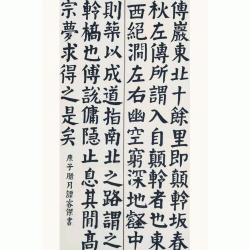 傅巖東北十餘里即顛軨坂春
秋左傳所謂入自顛軨者也東
西絕澗左右幽空窮深地壑中
則築以成道指南北之路謂之
軨橋也傅說傭隱止息其間高
宗夢求得之是矣
庚子腊月書